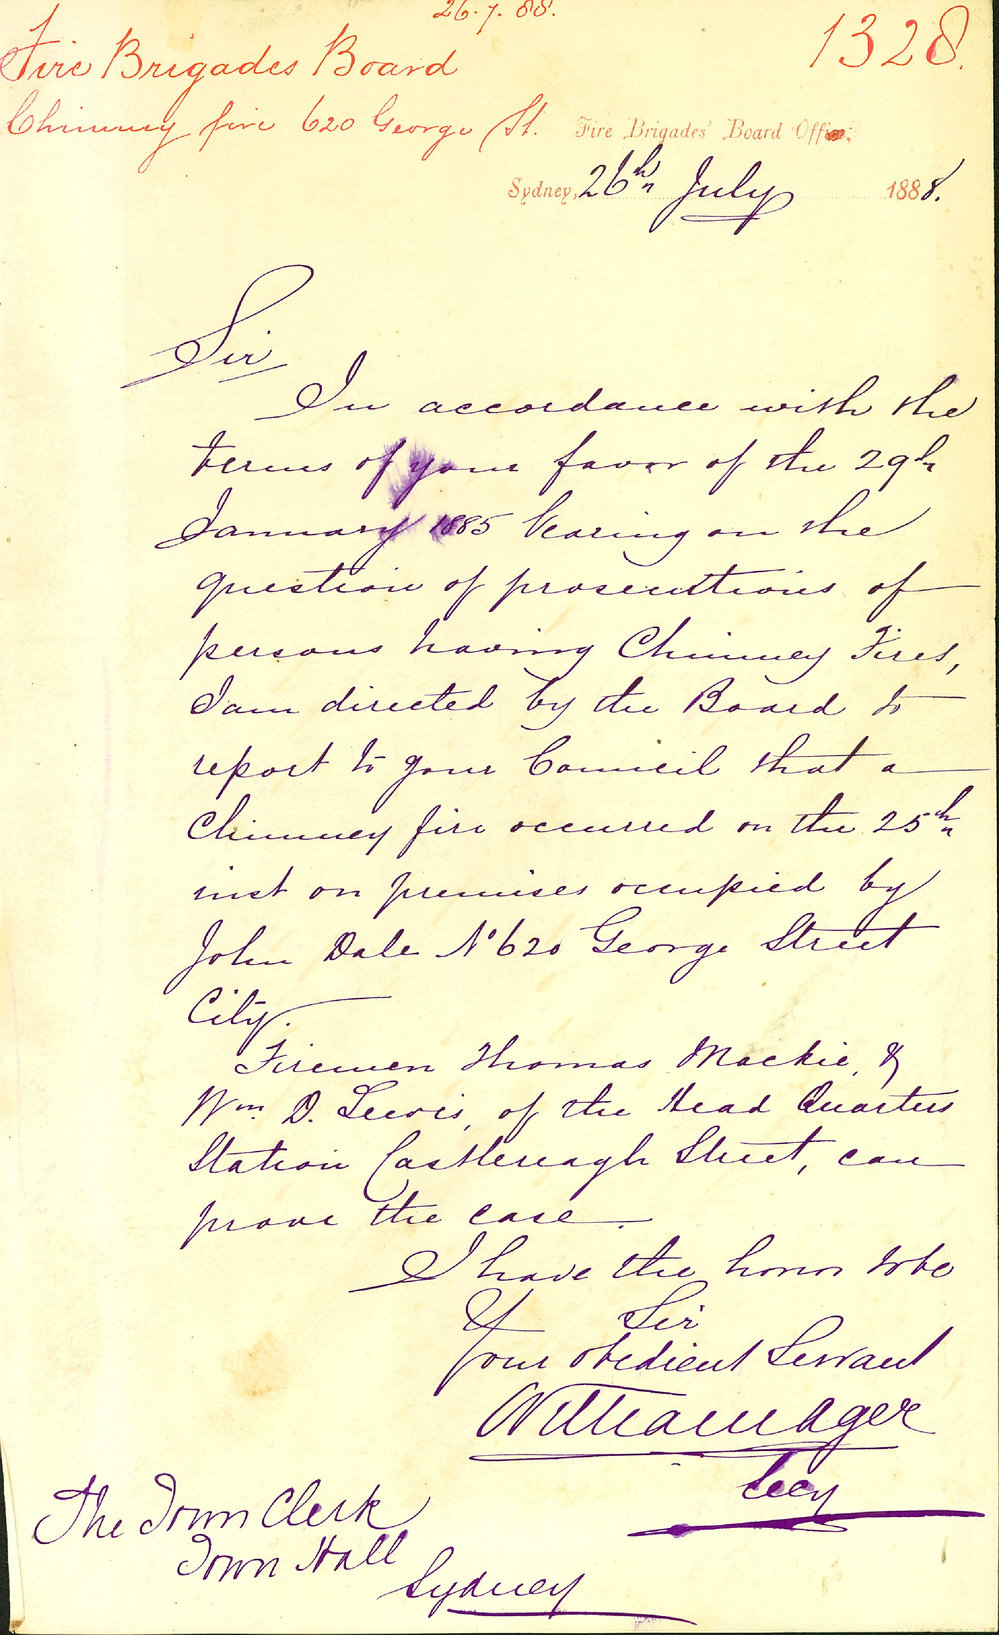 26.7.88.
1328.
Fire Brigades Board
Chimney fire 620 George St.
Fire Brigades' Board Office,
Sydney, 26th July 1888.
Sir
In accordance with the
terms of your favor of the 29th
January 1885 bearing on the
question of prosecutions of
persons having Chimney Fires,
I am directed by the Board to
report to your Council that a
Chimney fire occurred on the 25th
inst on premises occupied by
John Dale No 620 George Street
City.
Firemen Thomas Mackie, &
Wm. D. Lewis, of the Head Quarters
Station Castlereagh Street, can
prove the case.
I have the honor to be
Sir
Your obedient Servant
William Ager
Secy
The Town Clerk
Town Hall
Sydney